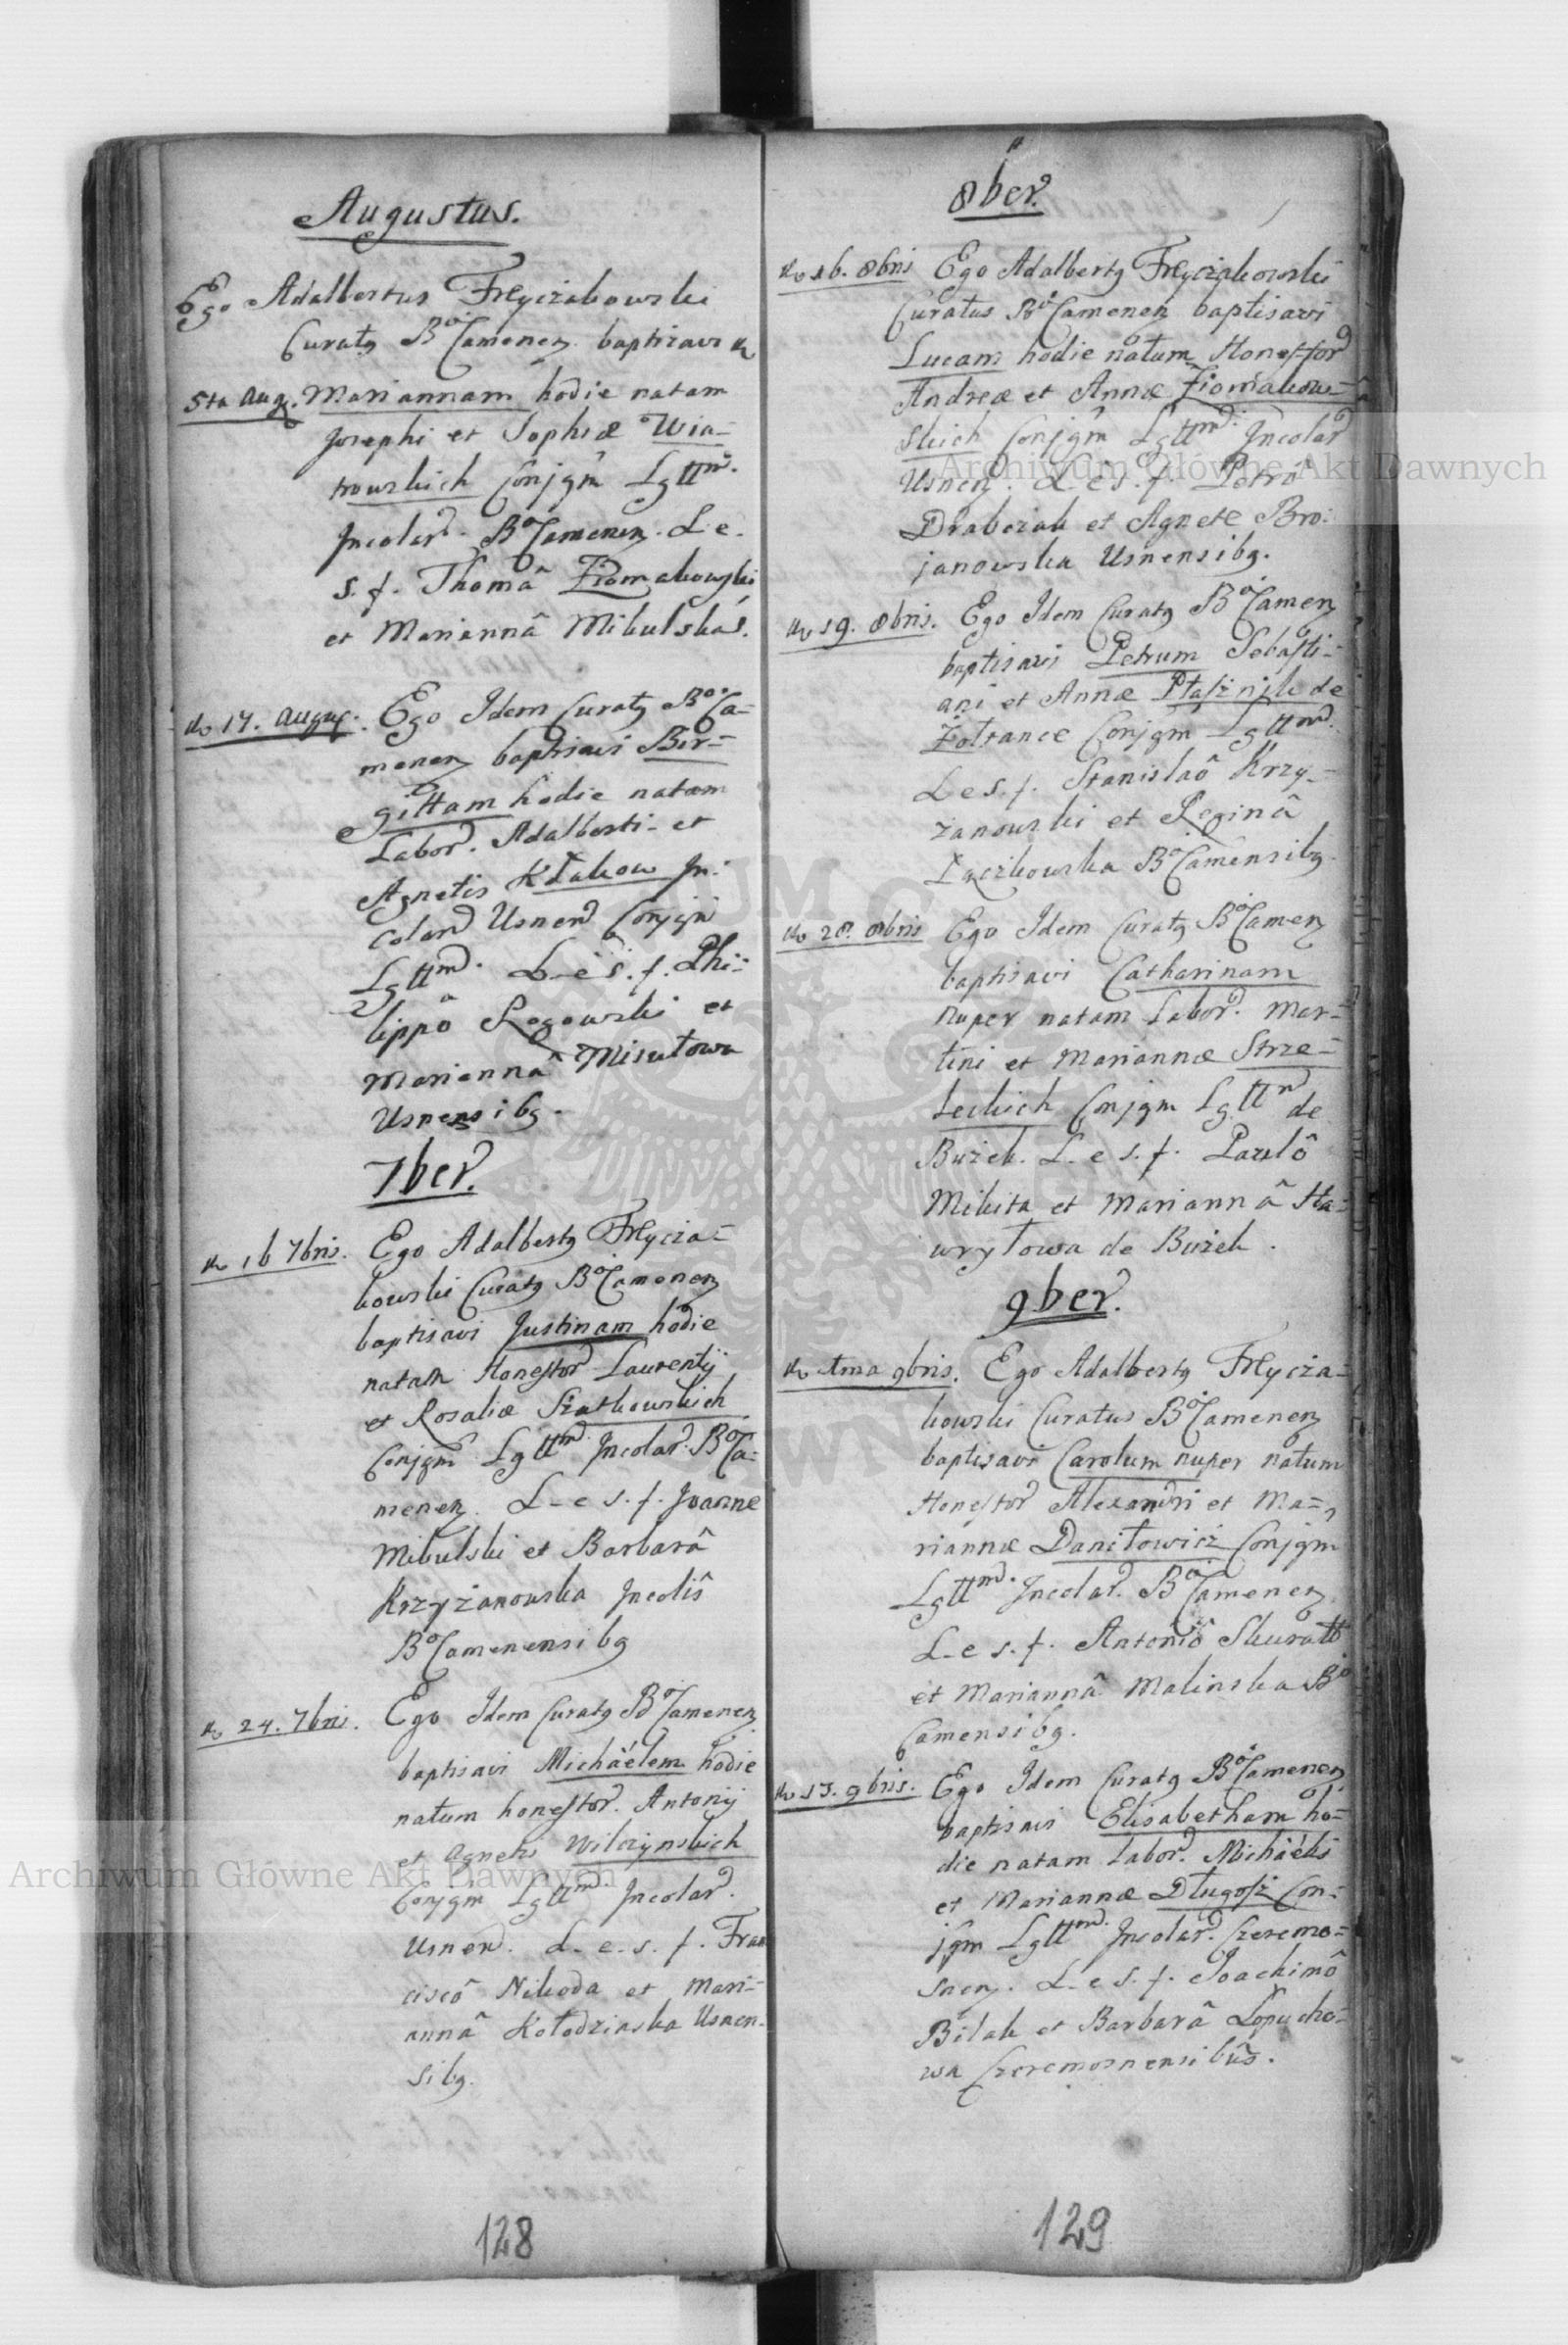 Augustus.
Ego Adalbertus Fryczakowski
Curatq BoCamenen baptisavi
5ta Aug. Mariannam hodie natam
Josephi et Sophiæ Wia=
trowskich Conjgm Lgttm.
Incolar. BoCamenen. L e.
s. f. Thomâ Ziomakowski
et Mariannâ Mikulska.
17. Augus. Ego Idem Curatq BoCa=
menen baptisavi Bir=
gittam hodie natam
Labor. Adalberti et
Agnetis Kłakow In:
colar Usnen Conjgm
Lgttm. L e s. f. Phi=
lippô Rogowski et
Mariannâ Misiutowa
Usnensibq.
7ber.
16 7bris. Ego Adalbertq Frycza=
kowski Curatq BoCamenen
baptisavi Justinam hodie
natam Honestor Laurentij
et Rosaliæ Szatkowskich
Conjgm Lgttm. Incolar. BoCa=
menen. L e s. f. Joanne
Mikulski et Barbarâ
Krzyżanowska Incolis
BoCamenensibq
24. 7bris. Ego Idem Curatq BoCamenen
baptisavi Michäélem hodie
natum honestor. Antonij
et Agnetis Wilczynskich
Conjgm Lgttm. Incolar.
Usnen. L. e. s. f. Fran
ciscô Nikoda et Mari=
annâ Kołodzinska Usnen.
sibq.
128
8ber.
16. 8bris Ego Adalbertq Fryczakowski
Curatus BoCamenen baptisavi
Lucam hodie natum Honestor
Andreæ et Annæ Ziomakow=
skich Conjgm Lgttm. Incolar
Usnen. L e s. f. Petrô
Drabczak et Agnete Bro:
janowska Usnensibq.
19. 8bris. Ego Idem Curatq BoCamen
baptisavi Petrum Sebasti=
ani et Annæ Ptasznik de
Zotrance Conjgm Lgttm.
L e s. f. Stanislaô Krzy=
zanowski et Reginâ
Łączkowska BoCamensibq.
28. 8bris Ego Idem Curatq BoCamen
baptisavi Catharinam
nuper natam Labor. Mar=
tini et Mariannæ Strze=
leckich Conjgm Lgttm de
Bużek. L e s. f. Pawlô
Mikita et Mariannâ Ha=
wryłowa de Bużek.
9ber.
1ma 9bris. Ego Adalbertq Frycza=
kowski Curatus BoCamenen
baptisavi Carolum nuper natum
Honestor Alexandri et Ma=
riannæ Daniłowicz Conjgm
Lgttm. Incolar. BoCamenen
L e s. f. Antoniô Skuratt
et Mariannâ Malinska Bo
Camensibq.
13. 9bris. Ego Idem Curatq BoCamenen
baptisavi Elisabetham ho=
die natam Labor. Michäélis
et Mariannæ Długosz Con=
jgm Lgttm. Incolar. Czeremo=
snen. L e s. f. Joachimô
Bilak et Barbarâ Łopucho=
wa Czeremosnensibûs.
129
Archiwum Główne Akt Dawnych
Archiwum Główne Akt Dawnych